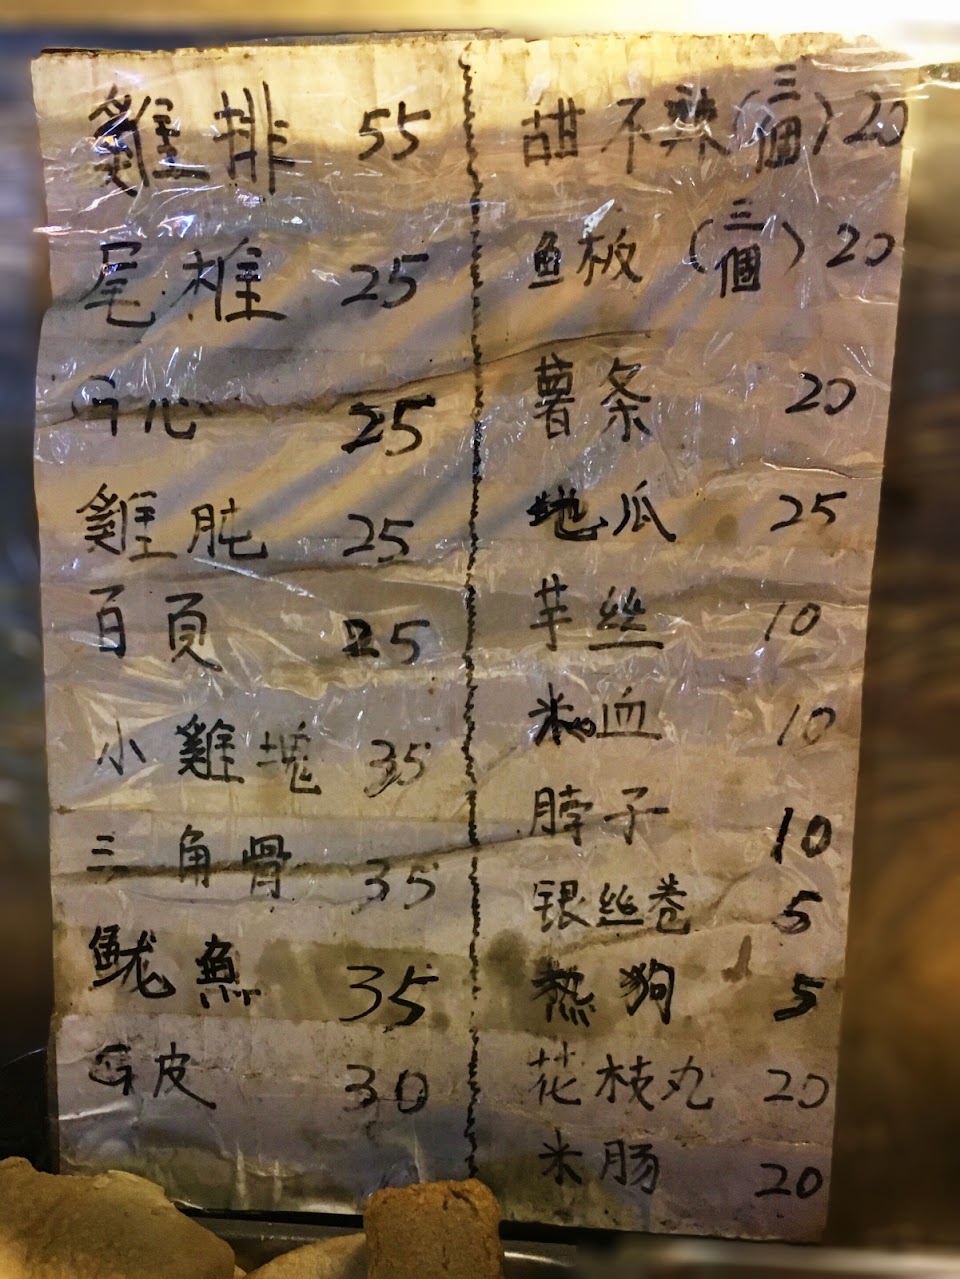 雞排 55
尾椎 25
心 25
雞肫 25
百頁 25
小雞塊 35
三角骨 35
魷魚 35
皮 30
甜不辣(三個) 20
鱼板(三個) 20
薯条 20
地瓜 25
芋丝 10
米血 10
脖子 10
银丝卷 5
热狗 5
花枝丸 20
米肠 20